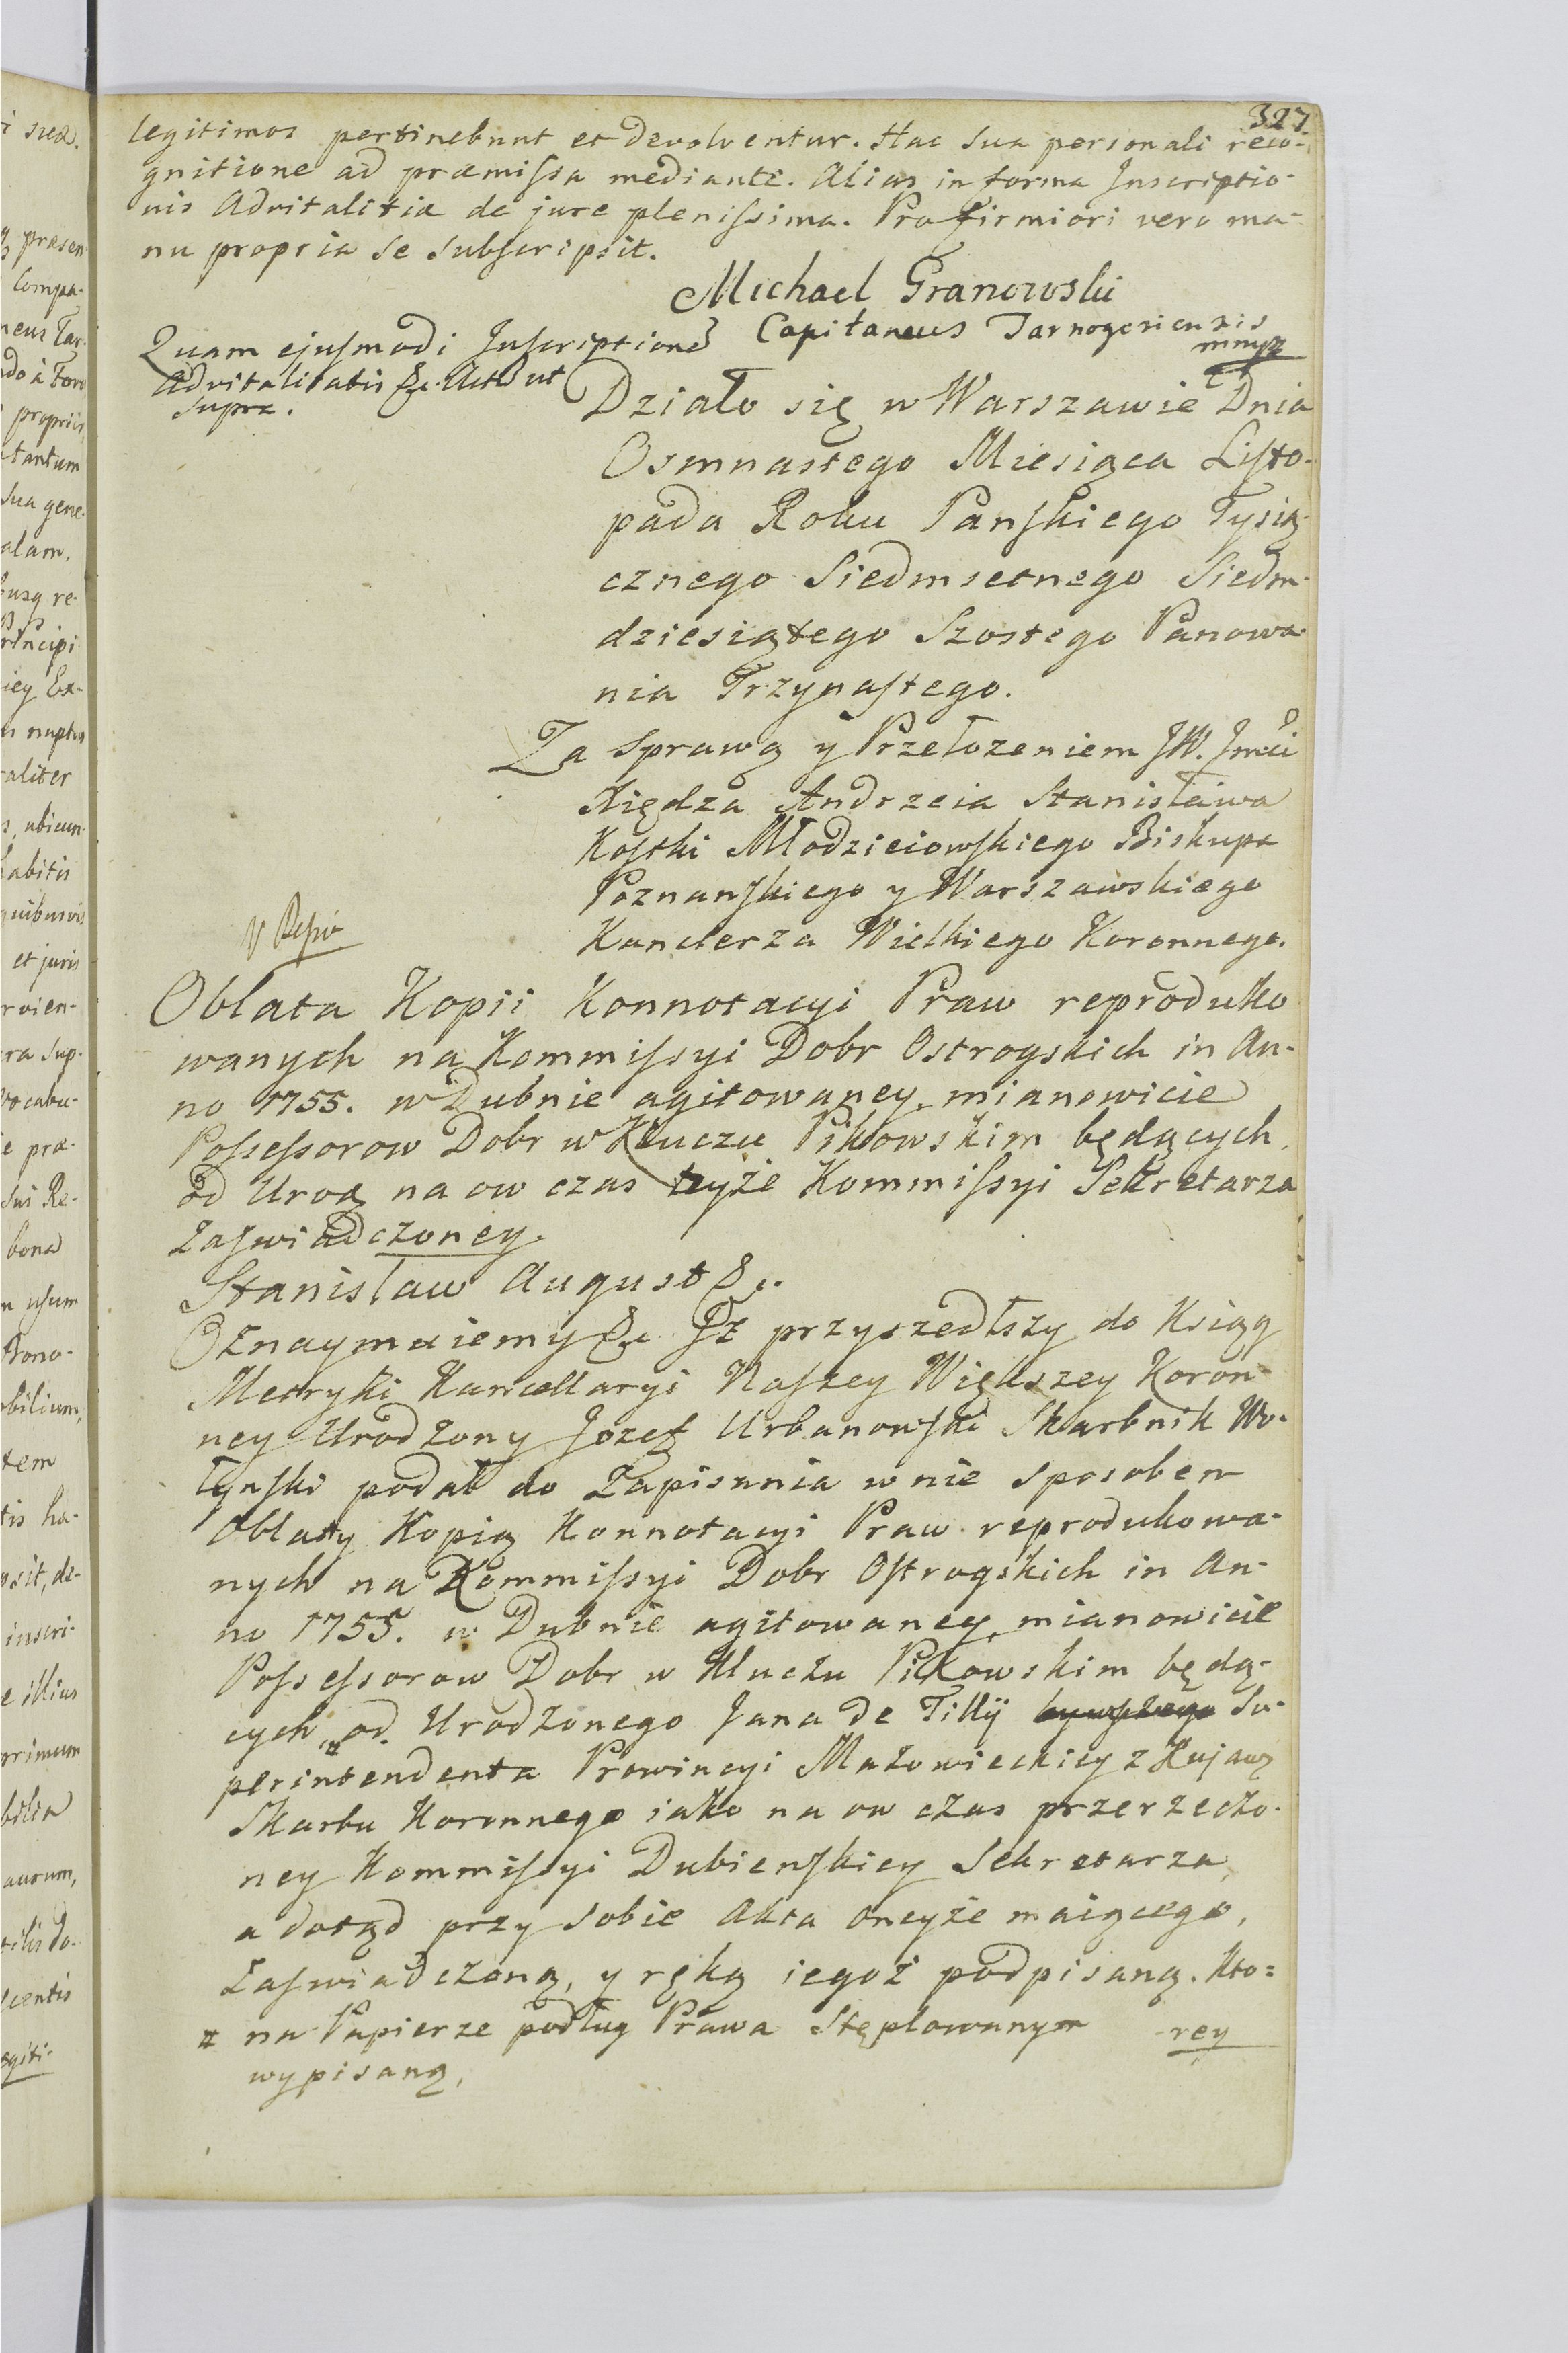 327.
legitimos pertinebunt et devolventur. Hac sua personali reco-
gnitione ad præmiſsa mediante. Alias in forma Inscriptio-
nis Advitalitiæ de jure pleniſsima. Pro firmiori vero ma-
nu propria se subſcripsit.
Michael Granowski
Capitaneus Tarnogoriensis
mmpp
Quam ejuſmodi Inſcriptione
Advitalitatis &c. Act. ut
supra.
Działo się w Warszawie Dnia
Osmnastego Miesiąca Liſto-
pada Roku Panſkiego Tysią-
cznego Siedmsetnego Siedm-
dziesiątego Szostego Panowa-
nia Trzynaſtego.
Za Sprawą y Przełozeniem JW. Jmci
Xiędza Andrzeia Stanisława
Koſtki Młodzieiowſkiego Biskupa
Poznanſkiego y Warszawskiego
Kanclerza Wielkiego Koronnego.
Oblata Kopii Konnotacyi Praw reproduko
wanych na Kommiſsyi Dobr Ostrogskich in An-
no 1755. w Dubnie agitowaney, mianowicie
Poſseſsorow Dobr w Kluczu Pikowskim będących,
od Urodz na ow czas teyże Kommiſsyi Sekretarza
Zaſwiadczoney.
Stanisław August &c.
Oznaymuiemy &c. Jż przyszedłszy do Xiąg
Metryki Kancellaryi Naſzey Większey Koron-
ney Urodzony Jozef Urbanowſki Skarbnik Wo-
łynſki podał do Zapisania w nie sposobem
Oblaty Kopią Konnotacyi Praw reprodukowa-
nych na Kommiſsyi Dobr Oſtrogskich in An-
no 1755. w Dubnie agitowaney, mianowicie
Poſseſsorow Dobr w Kluczu Pikowskim będą-
cych, # od Urodzonego Jana de Tilly bywſzego Su-
perintendenta Prowincyi Mazowieckiey z Kujawą
Skarbu Koronnego iako na ow czas przerzeczo-
ney Kommiſsyi Dubienſkiey Sekretarza,
a dotąd przy sobie Akta oneyże maiącego,
Zaſwiadczoną, y ręką iegoż podpisaną. Kto=
# na Papierze podług Prawa Stęplowanym
wypisaną,
-rey